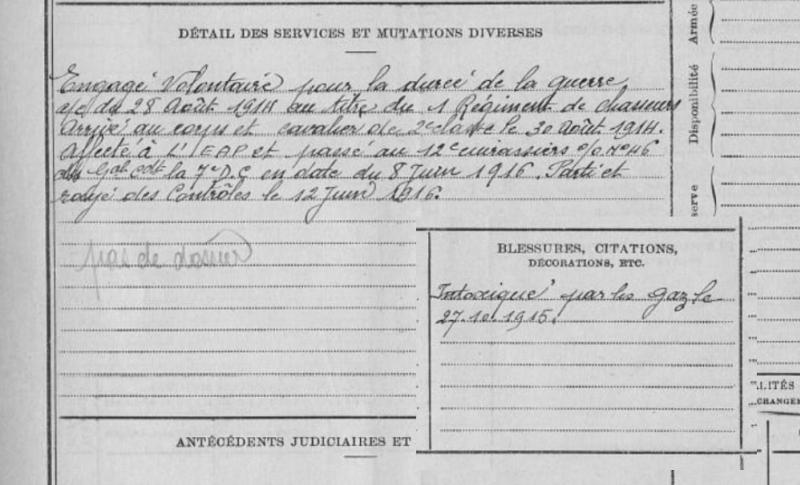 DÉTAIL DES SERVICES ET MUTATIONS DIVERSES
Engagé Volontaire pour la durée de la guerre
du 28 Août 1914 au titre du 1 Régiment de chasseurs
Arrivé au corps et cavalier de 2e classe le 30 août 1914.
Affecté à L'IEAP et passé au 12e cuirassiers o/o No 46
du Gal Cdt la 7e D.C en date du 8 Juin 1916. Parti et
rayé des Contrôles le 12 Juin 1916.
pas de dossier
BLESSURES, CITATIONS,
DÉCORATIONS, ETC.
Intoxiqué par les gaz le
27.10.1915.
ANTÉCÉDENTS JUDICIAIRES ET
Armée
Disponibilité
serve
LITÉS
CHANGE